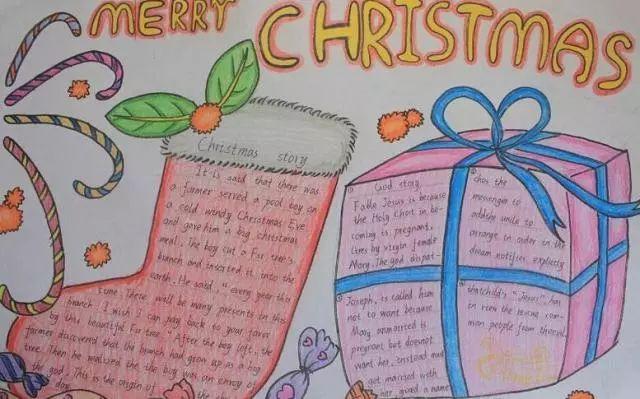 MERRY CHRISTMAS
Christmas story
It is said that there was
a farmer served a pool boy on
a cold windy Christmas Eve
and gave him a big christmas
meal. The boy cut a Fur tree's
branch and inserted it into the
earth. He said, "every year this
time There will be many presents in this
branch I wish I can pay back to your favor
by this beautiful Fur tree." After the boy left, the
farmer discovered that the branch had grown up as a big
tree. Then he realized the the boy was an envoy of
the god. This is the origin of the
day
God story
Fable Jesus is because
the Holy Ghost in be-
coming is pregnant,
lives by virgin female
Mary. The god dispat-
ches the
messenger to
addshe smile to
arrange in order in the
dream notifies explicitly
Joseph, is called him
not to want because
Mary unmarried is
pregnant but doesnot
want her, instead must
get married with
her, gived a name
that child's "Jesus", has
in rem the tense com-
mon people from